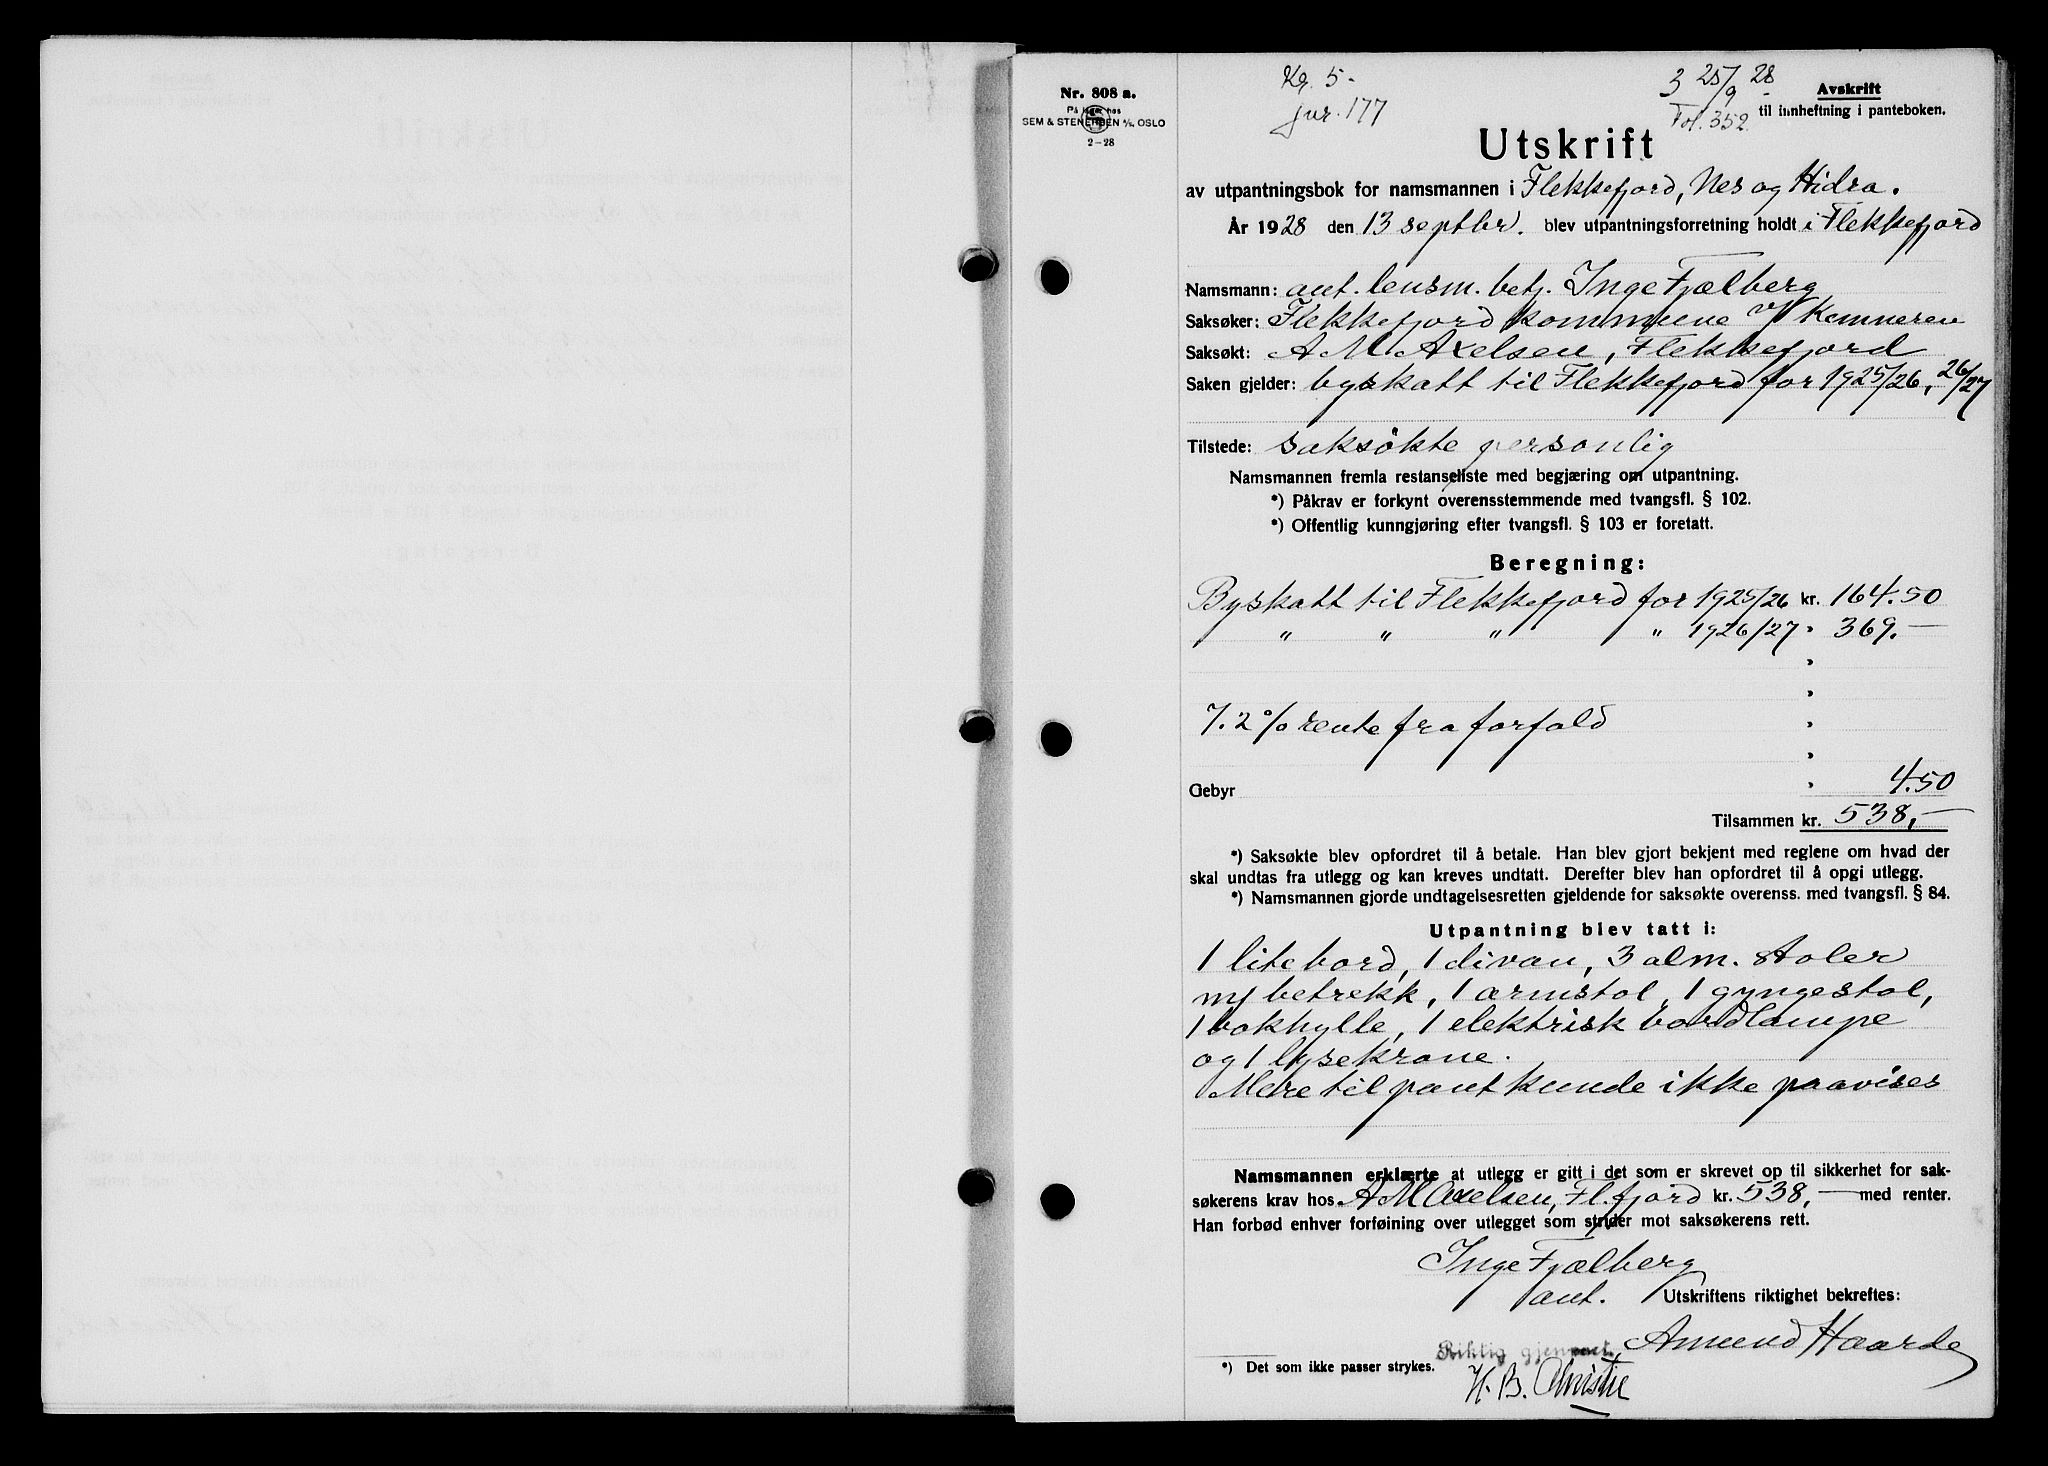 Kr. 5-
jnr. 177
3 25/9 28
Fol. 352
Avskrift
til innheftning i panteboken.
Nr. 808 a.
På lager hos
SEM & STENERSEN A/S, OSLO
2-28
Utskrift
av utpantningsbok for namsmannen i Flekkefjord, Nes og Hidra.
År 1928 den 13 septbr. blev utpantningsforretning holdt i Flekkefjord
Namsmann: aut. lensm. betj. Inge Fjælberg
Saksøker: Flekkefjord kommune v/ Kemneren
Saksøkt: A M Axelsen, Flekkefjord
Saken gjelder: byskatt til Flekkefjord for 1925/26, 26/27
Tilstede: saksökte personlig
Namsmannen fremla restanseliste med begjæring om utpantning.
*) Påkrav er forkynt overensstemmende med tvangsfl. § 102.
*) Offentlig kunngjøring efter tvangsfl. § 103 er foretatt.
Beregning:
Byskatt til Flekkefjord for 1925/26 kr. 164.50
" " " " 1926/27 " 369.-
"
"
7.2 % rente fra forfald "
"
Gebyr " 4.50
Tilsammen kr. 538,-
*) Saksøkte blev opfordret til å betale. Han blev gjort bekjent med reglene om hvad der
skal undtas fra utlegg og kan kreves undtatt. Derefter blev han opfordret til å opgi utlegg.
*) Namsmannen gjorde undtagelsesretten gjeldende for saksøkte overenss. med tvangsfl. § 84.
Utpantning blev tatt i:
1 lite bord, 1 divan, 3 alm. stoler
m/ betrekk, 1 ærmstol, 1 gyngestol,
1 bokhylle, 1 elektrisk bordlampe
og 1 lysekrone.
Mere til pant kunde ikke paavises
Namsmannen erklærte at utlegg er gitt i det som er skrevet op til sikkerhet for sak-
søkerens krav hos A M Axelsen, Fl.fjord kr. 538,- med renter.
Han forbød enhver forføining over utlegget som strider mot saksøkerens rett.
Inge Fjælberg
aut.
Utskriftens riktighet bekreftes:
Amund Haarde
Riktig gjenpart,
*) Det som ikke passer strykes.
H. B. Christie